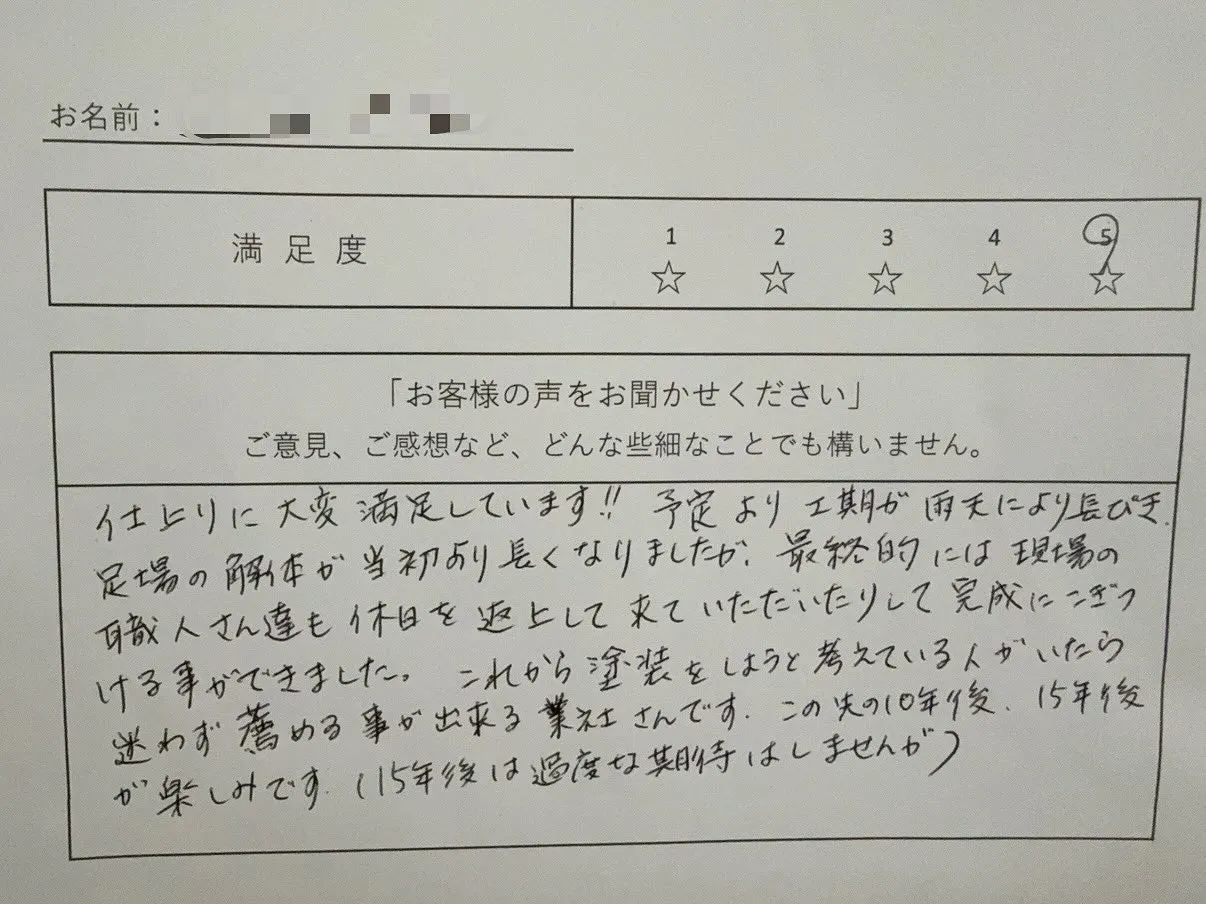 お名前：
満足度
1 2 3 4 5
☆ ☆ ☆ ☆ ☆
「お客様の声をお聞かせください」
ご意見、ご感想など、どんな些細なことでも構いません。
仕上りに大変満足しています!! 予定より工期が雨天により長びき、
足場の解体が当初より長くなりましたが、最終的には現場の
職人さん達も休日を返上して来ていただいたりして完成にこぎつ
ける事ができました。 これから塗装をしようと考えている人がいたら
迷わず薦める事が出来る業社さんです。この先の10年後、15年後
が楽しみです。(15年後は過度な期待はしませんが)